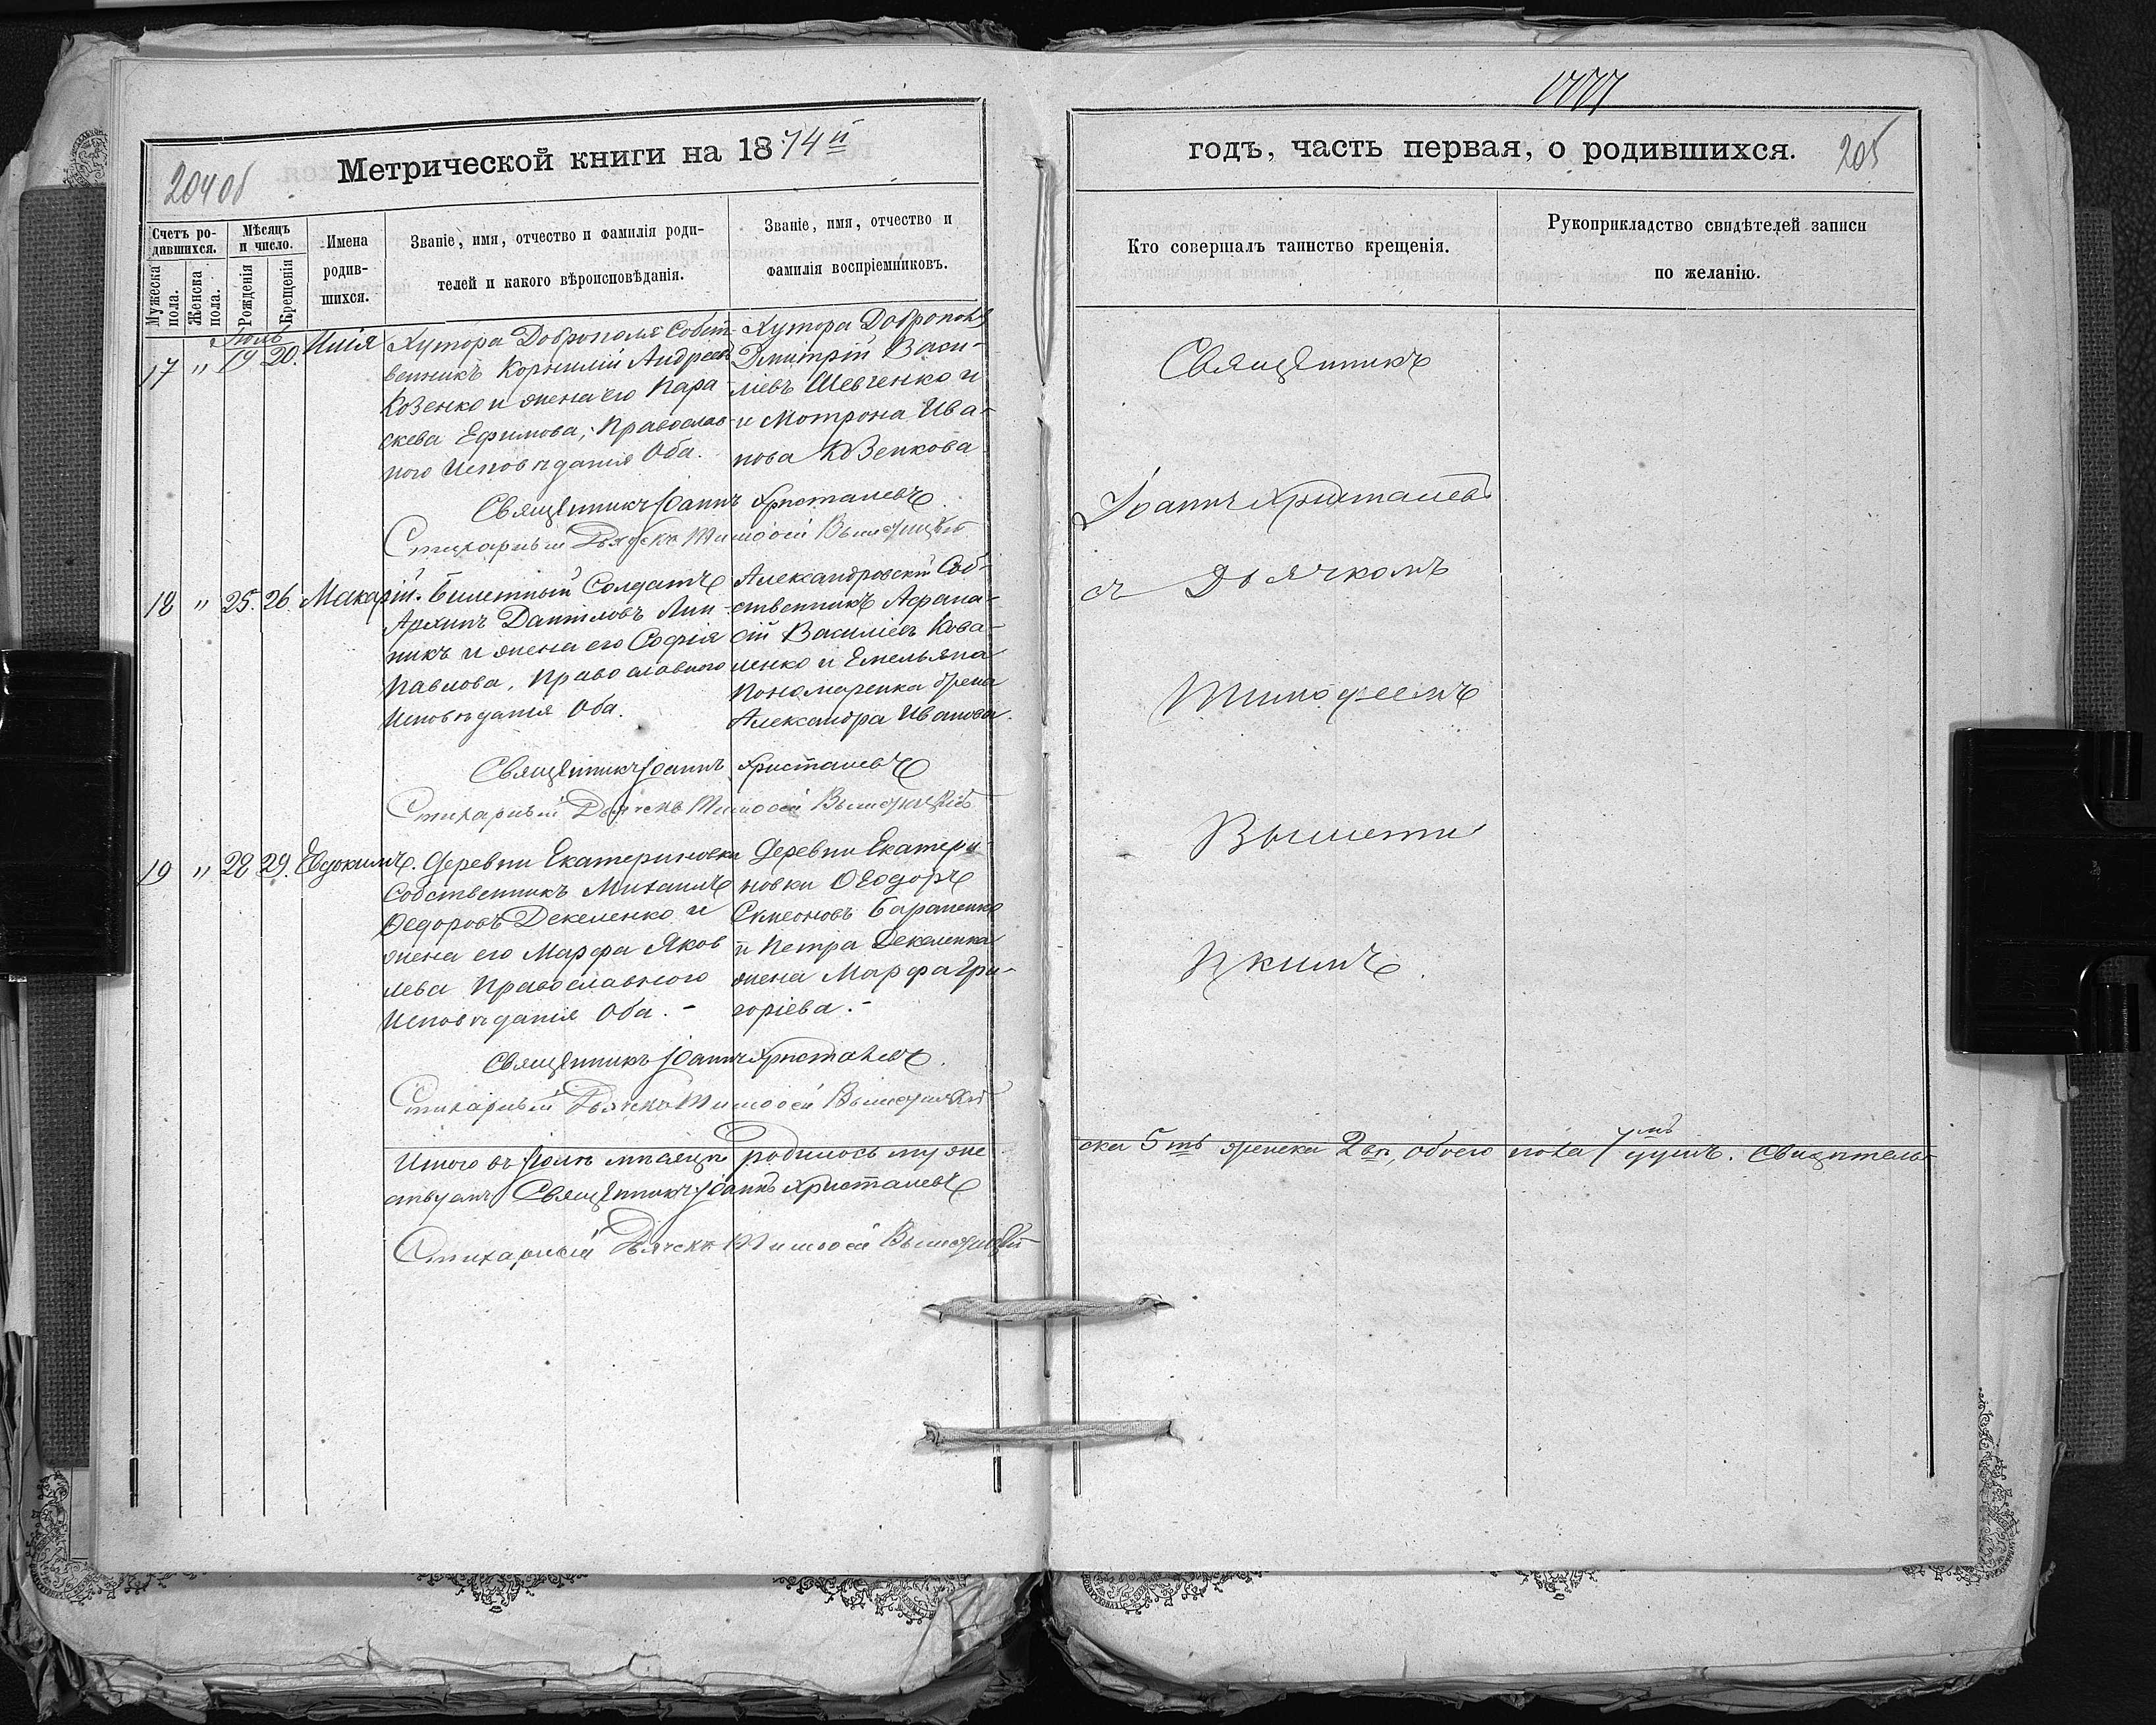 204 об
Метрической книги на 1874й
Счетъ ро-
дившихся.
Мужеска
пола.
Женска
пола.
Мѣсяцъ
и число.
Рожденія
Крещенія
Имена
родив-
шихся.
Званіе, имя, отчество и фамилія роди-
телей и какого вѣроисповѣданія.
Званіе, имя, отчество и
фамилія воспріемниковъ.
Іюль
17 " 19 20. Илія
Хутора Доброполя Собст-
венникъ Корнилій Андреевъ
Козенко и жена его Пара-
скева Ефимова, Православ-
ного Исповѣданія Оба.
Хутора Доброполя
Дмитрій Васи-
ліевъ Шевченко и
и Мотрона Ива-
нова Козенкова
Священникъ Іоаннъ Христалевъ
Стихарный Дьячекъ Тимоѳей
18 " 25 26. Макарій.
Билетный Солдатъ
Архипъ Даниловъ Лин-
никъ и жена его Софія
Павлова, Православного
Исповѣданія Оба.
Александровскій Соб-
ственникъ Афана-
сій Василіевъ Кова-
ленко и Емельяна
Пономаренка жена
Александра Иванова.
Священникъ Іоаннъ Христалевъ
Стихарный Дьячекъ Тимоѳей
19 " 28 29. Евдокимъ.
Деревни Екатериновки
Собственникъ Михаилъ
Ѳедоровъ Декаленко и
жена его Марфа Яков
лева Православного
Исповѣданія Оба. -
Деревни Екатери-
новки Ѳеодоръ
Симеоновъ Бараненко
и Петра Декаленка
жена Марфа Гри-
горіева. -
Священникъ Іоаннъ Христалевъ.
Стихарный Дьячекъ Тимоѳей
Итого въ Іюлѣ мѣсяцѣ родилось муже
ствуютъ Священникъ Іоаннъ Христалевъ
Стихарный Дьячекъ Тимоѳей
годъ, часть первая, о родившихся.
205
Кто совершалъ таинство крещенія.
Рукоприкладство свидѣтелей записи
по желанію.
Священникъ
Іоаннъ Христалевъ
съ Дьячкомъ
Тимофеемъ
ска 5ть женска 2вѣ, обоего пола 7мь душъ. Свидѣтель-